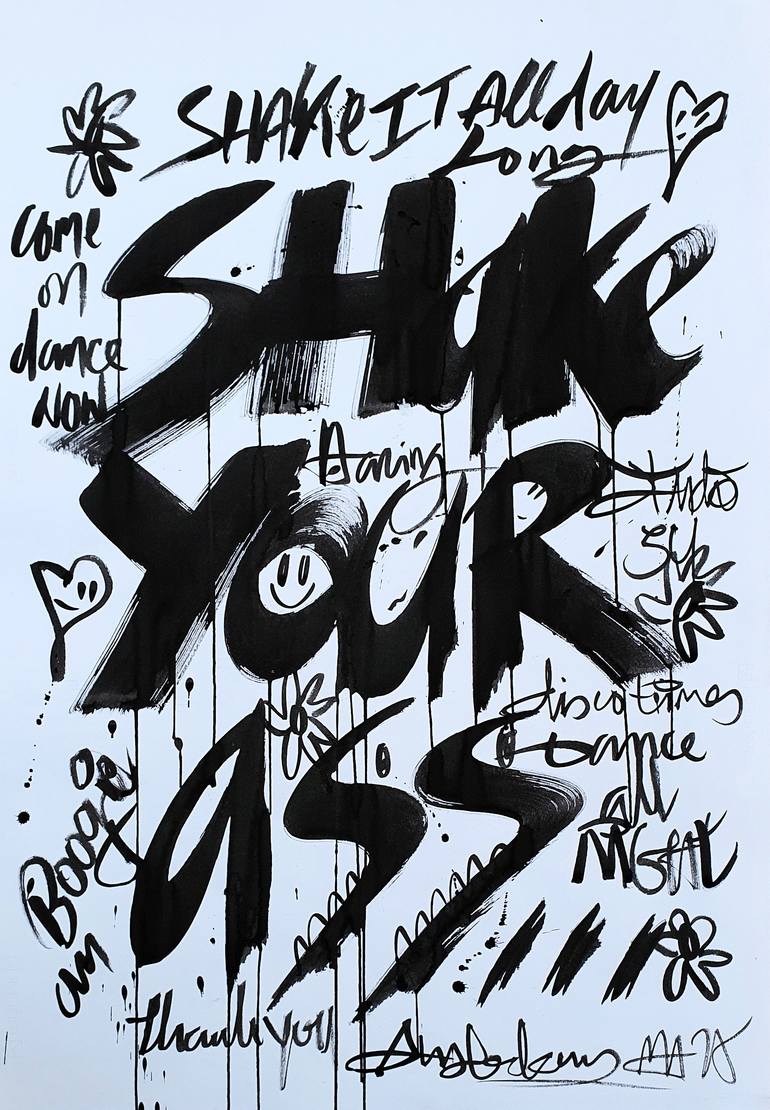 SHAKe IT All day
Long
Come
on
dance
NOW
SHaKe
Daring
YOUR
disco times
Dance
all
NIGHT
ass
Boogie
on
thank you
Amsterdam